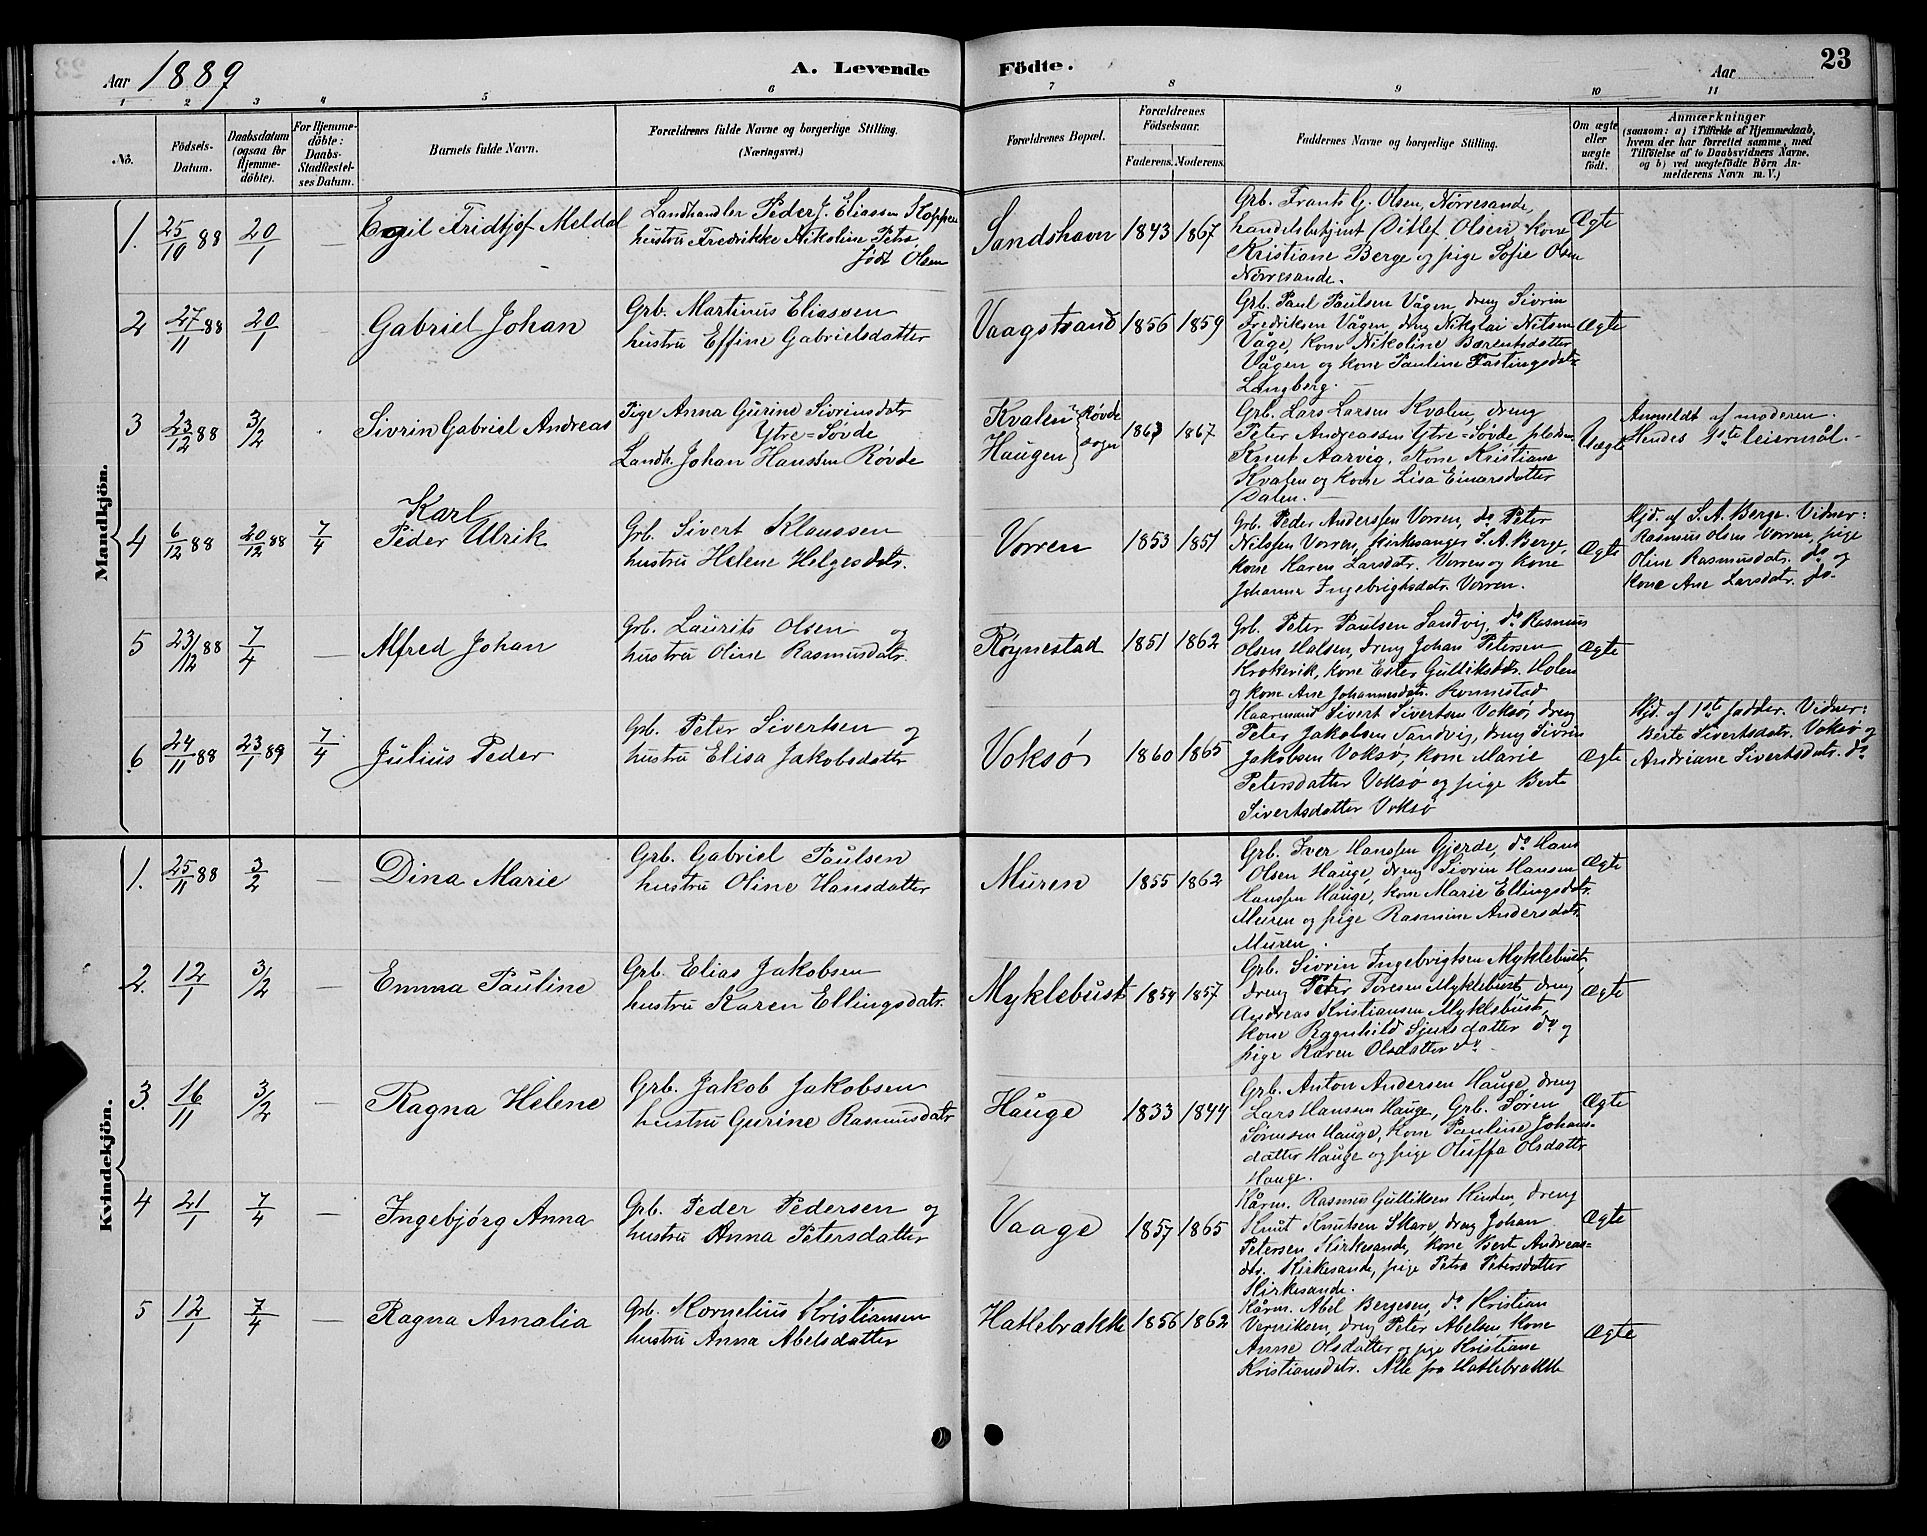 Aar 1889
A. Levende
Födte.
Aar
23
1 2 3 4 5 6 7 8 9 10 11
No.
Födsels-
Datum.
Daabsdatum
(ogsaa for
Hjemme-
döbte).
For Hjemme-
döbte:
Daabs-
Stadfæstel-
ses Datum.
Barnets fulde Navn.
Forældrenes fulde Navne og borgerlige Stilling.
(Næringsvei.)
Forældrenes Bopæl.
Forældrenes
Födselsaar.
Faderens. Moderens.
Faddernes Navne og borgerlige Stilling.
Om ægte
eller
uægte
födt.
Anmærkninger
(saasom: a) i Tilfælde af Hjemmedaab,
hvem der har forrettet samme, med
Tilföielse af to Daabsvidners Navne.
og b) ved uægtefödte Börn An-
melderens Navn m. V.)
Mandkjön.
1. 25/10 88 20/1 — Egil Fridtjof Meldal
Landhandler Peder J. Eliassen Koppen
hustru Fredrikke Nikoline Petra
født Olsen
Sandshavn 1843 1867
Grb. Frants G. Olsen, Nørresande,
handelsbetjent Ditlef Olsen, kone
Kristiane Berge og pige Sofie Olsen
Nørresande.
Ægte
2 27/11 88 20/1 — Gabriel Johan
Grb. Martinus Eliassen
hustru Effine Gabrielsdatter
Vaagstrand 1856 1859
Grb. Paul Paulsen Vågen, dreng Sivrin
Fredriksen Vågen, dreng Nikolai Nilsen
Våge, kone Nikoline Bærentsdatter
Vågen og kone Pauline Fastingsdatr
Langberg. —
Ægte
3 23/12 88 3/2 Sivrin Gabriel Andreas
Pige Anna Gurine Sivrinsdatr
Ytre=Søvde
Landh. Johan Hanssen Røvde
Kvalen Røvde
Haugen sogn
1863 1867
Grb. Lars Larsen Kvalen, dreng
Peter Andreassen Ytre=Søvde,
Knut Aarvig, Kone Kristiane
Kvalen og kone Lisa Einarsdatter
Dalen. —
Uægte
Anmeldt af moderen.
Hendes 1ste leiermål. —
4 6/12 88 20/12 88 7/4 Karl
Peder Ulrik
Grb. Sivert Klaussen
hustru Helene Helgesdatr.
Vorren 1853 1851
Grb. Peder Anderssen Vorren, do Peter
Nilssen Vorren, kirkesanger S. A. Berge,
kone Karen Larsdatr. Vorren og kone
Johanna Ingebrigtsdatr. Vorren.
Ægte
Hjd. af S. A. Berge. Vidner:
Rasmus Olsen Vorren, pige
Oline Rasmusdatr. do og
kone Ane Larsdatr. do.
5 23/12 88 7/4 — Alfred Johan
Grb. Laurits Olsen og
hustru Oline Rasmusdatr.
Røynestad 1851 1862
Grb. Peter Paulsen Sandvig, do Rasmus
Olsen Halsen, dreng Johan Petersen
Krokevik, kone Ester Gulliksdtr. Holen
og kone Ane Johannesdatr. Rønnestad
Ægte
6 24/11 88 23/1 89 7/4 Julius Peder
Grb. Peter Sivertsen og
hustru Elisa Jakobsdatter
Voksø 1860 1865
Kaarmand Sivert Sivertsen Voksø, dreng
Peter Jakobsen Sandvig, dreng Sivrin
Jakobsen Voksø, kone Marie
Petersdatter Voksø og pige Berte
Sivertsdatter Voksø
Ægte
Hjd. af 1ste fadder. Vidner:
Berte Sivertsdatr. Voksø og
Andriane Sivertsdatr. do
Kvindekjön.
1. 25/11 88 3/2 — Dina Marie
Grb. Gabriel Paulsen
hustru Oline Hansdatter
Muren 1855 1862
Grb. Iver Hanssen Gjerde, do Hans
Olsen Hauge, dreng Sivrin Hansen
Hanssen Hauge, kone Marie Ellingsdatr.
Muren og pige Rasmine Andersdatr.
Muren.
Ægte
2. 12/1 3/2 — Emma Pauline
Grb. Elias Jakobsen
hustru Karen Ellingsdatr.
Myklebust 1854 1857
Grb. Sivrin Ingebrigtsen Myklebust,
dreng Peter Toresen Myklebust, dreng
Andreas Kristiansen Myklebust,
kone Ragnhild Sjursdatter do og
pige Karen Olsdatter do.
Ægte
3. 16/11 3/2 — Ragna Helene
Grb. Jakob Jakobsen
hustru Gurine Rasmusdatr
Hauge 1833 1844
Grb. Anton Andersen Hauge, dreng
Lars Hanssen Hauge, Grb. Søren
Sørensen Hauge, kone Pauline Johans-
datter Hauge og pige Oluffa Olsdatter
Hauge.
Ægte
4 21/1 7/4 — Ingebjørg Anna
Grb. Peder Pedersen og
hustru Anna Petersdatter
Vaage 1857 1865
Kårm. Rasmus Gulliksen Hinden, dreng
Knut Knutsen Skare, dreng Johan
Petersen Kirkesande, kone Berte Andreas=
dtr. Kirkesande, pige Petra Petersdatter
Kirkesande.
Ægte
5 12/1 7/4 — Ragna Amalia
Grb. Kornelius Kristiansen
hustru Anna Abelsdatter
Hatlebrække 1856 1862
Kårm. Abel Bergesen, do Kristian
Verniksen, dreng Peter Abelsen, kone
Anne Olsdatter og pige Kristiane
Kristiansdatr. Alle fra Hatlebrække
Ægte